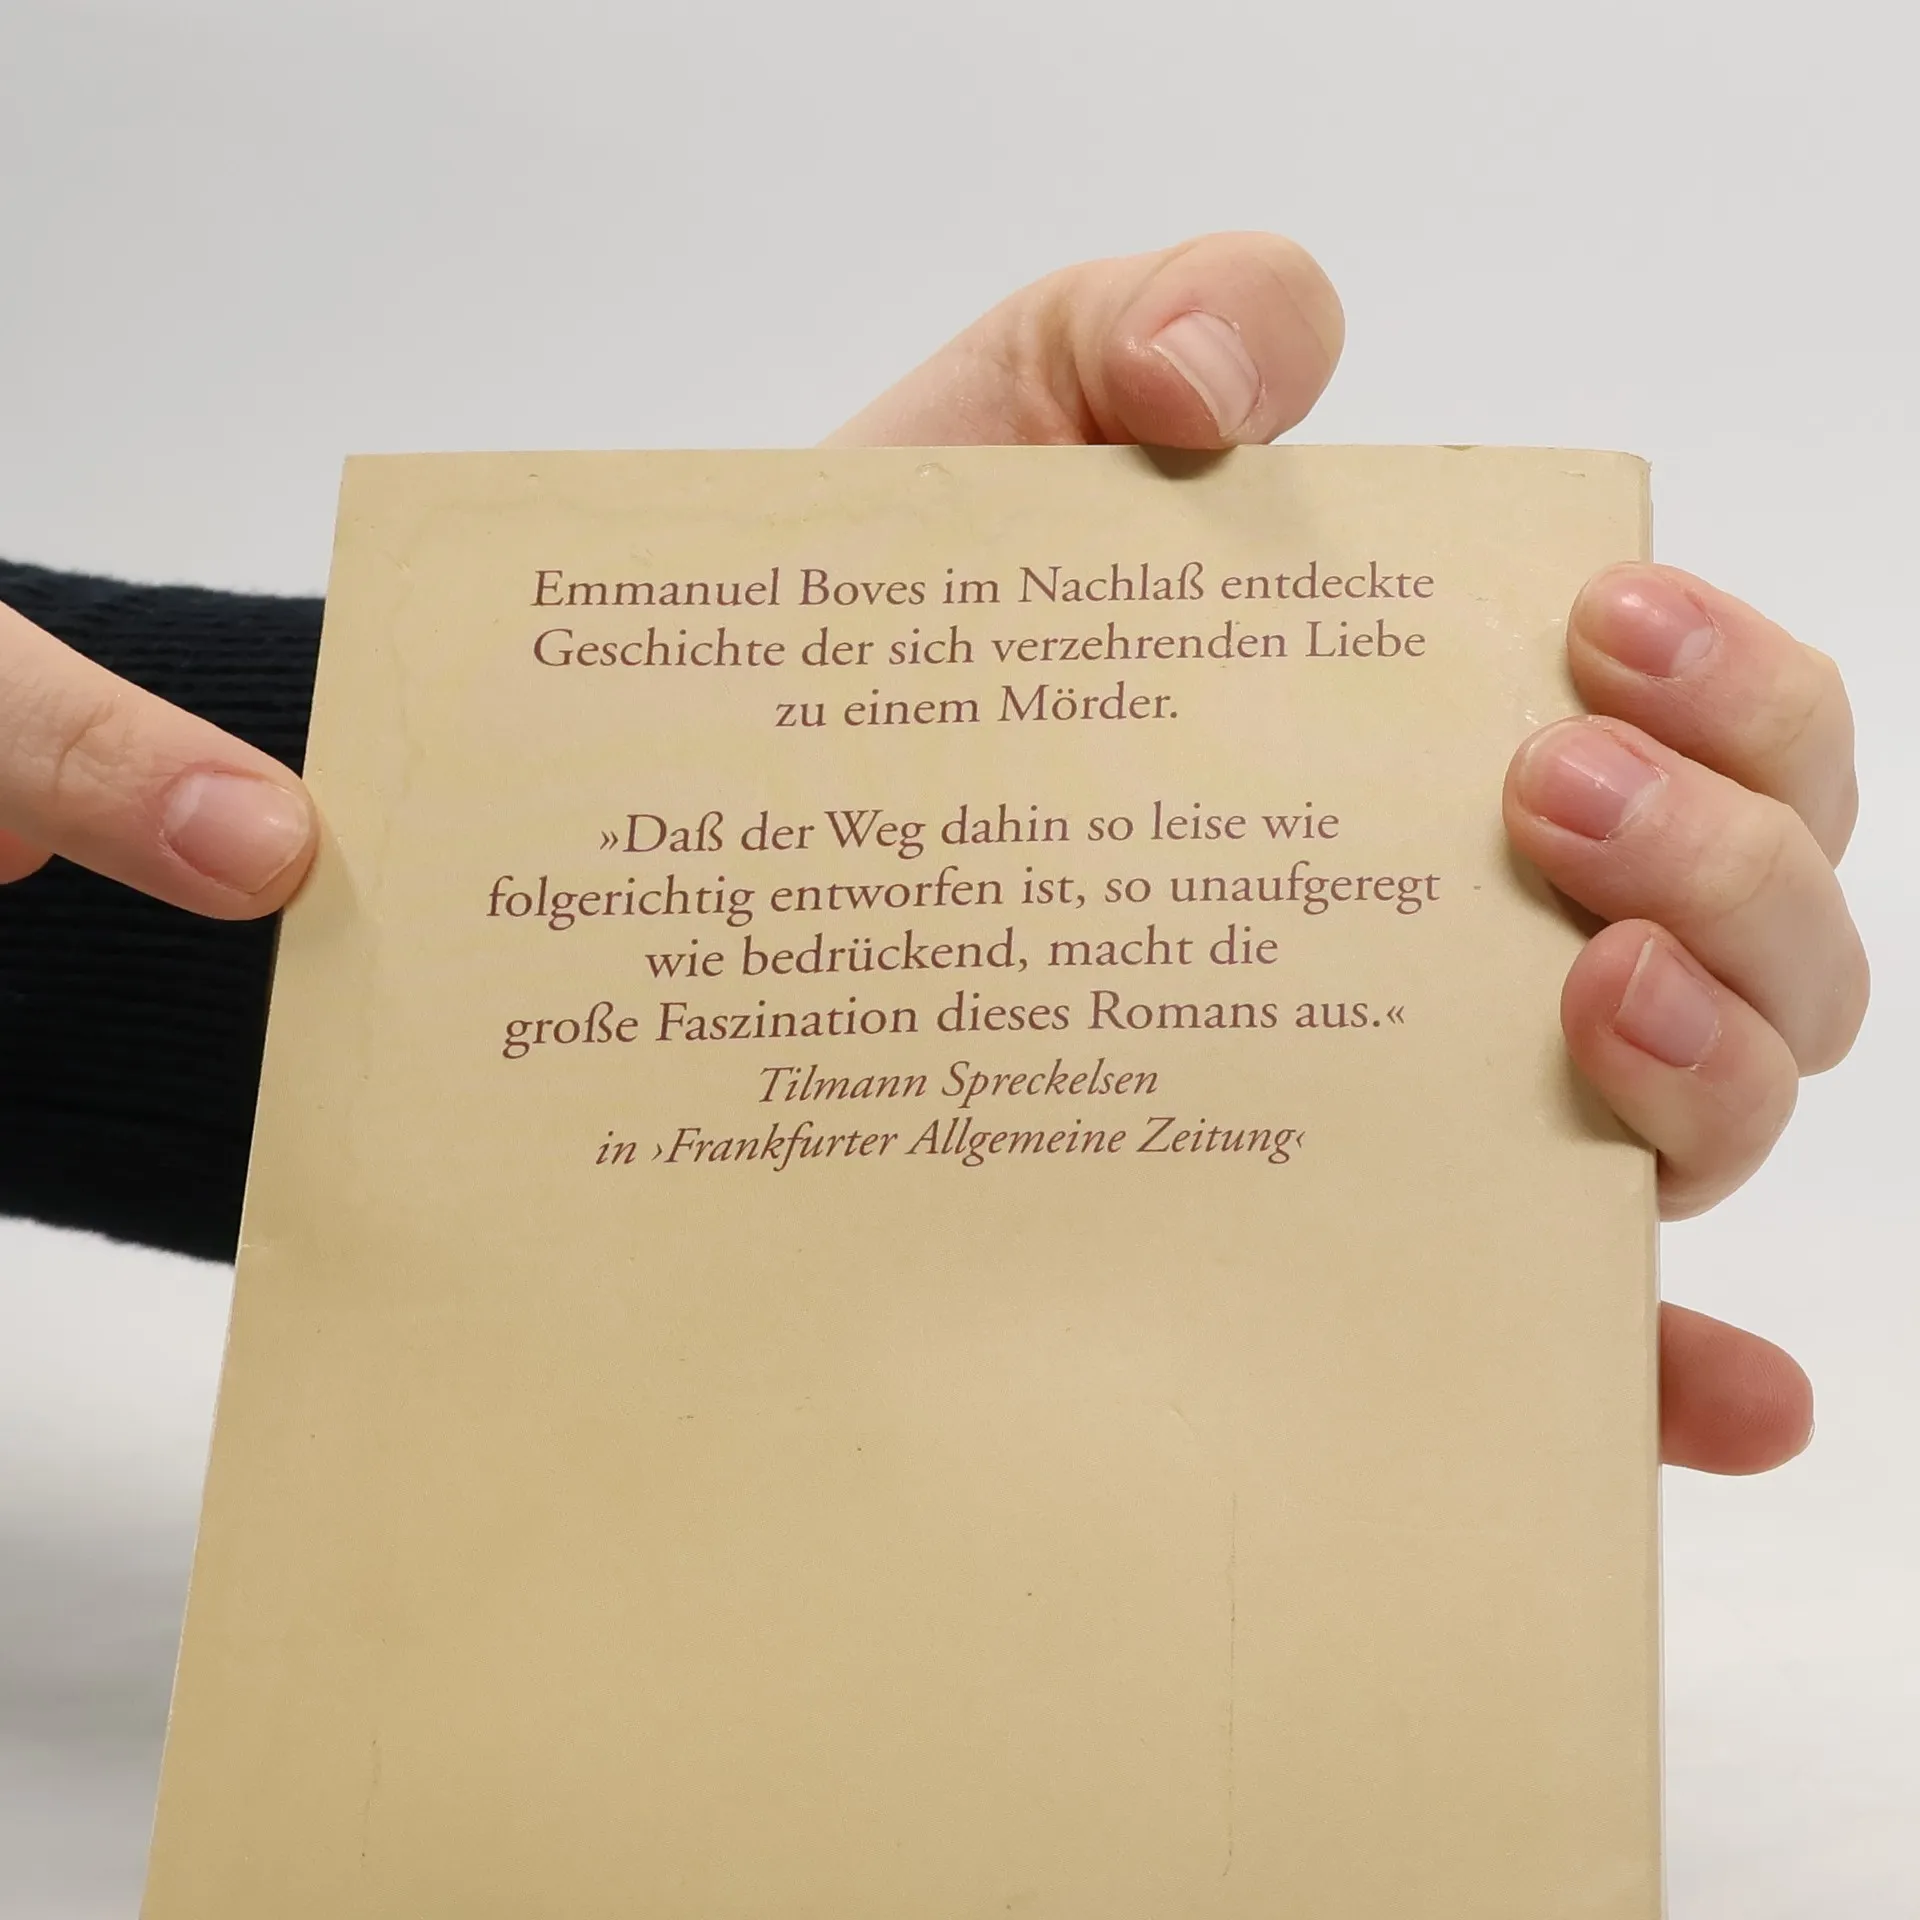 Emmanuel Boves im Nachlaß entdeckte
Geschichte der sich verzehrenden Liebe
zu einem Mörder.
»Daß der Weg dahin so leise wie
folgerichtig entworfen ist, so unaufgeregt
wie bedrückend, macht die
große Faszination dieses Romans aus.«
Tilmann Spreckelsen
in ›Frankfurter Allgemeine Zeitung‹